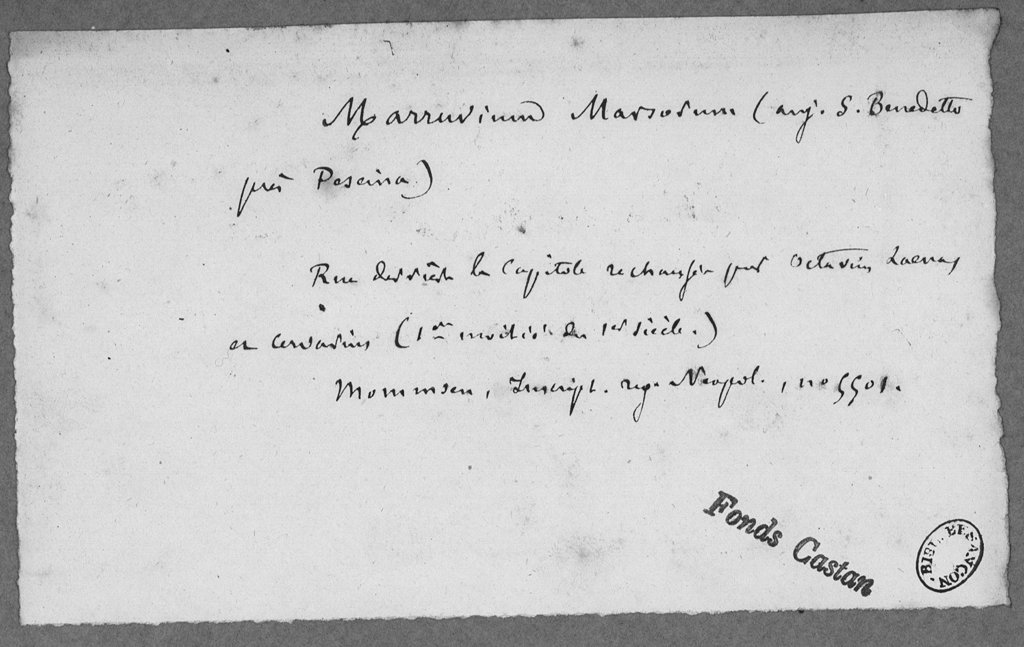 Marruvium Marsorum (auj. S. Benedetto
près Pescina)
Rue derrière le Capitole rechaussée par Octavius Laenas
et Cervarius (1ère moitié du 1er siècle.)
Mommsen, Inscript. reg. Neapol., no 5501.
Fonds Castan
BIBL. BESANÇON